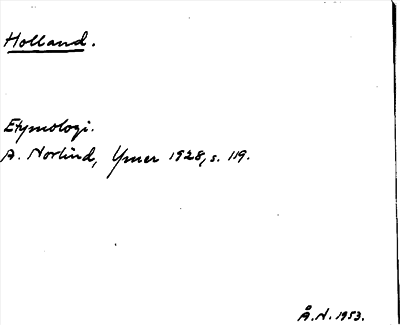 Holland.
Etymologi.
A. Norlind, Ymer 1928, s. 119.
Å.N. 1953.